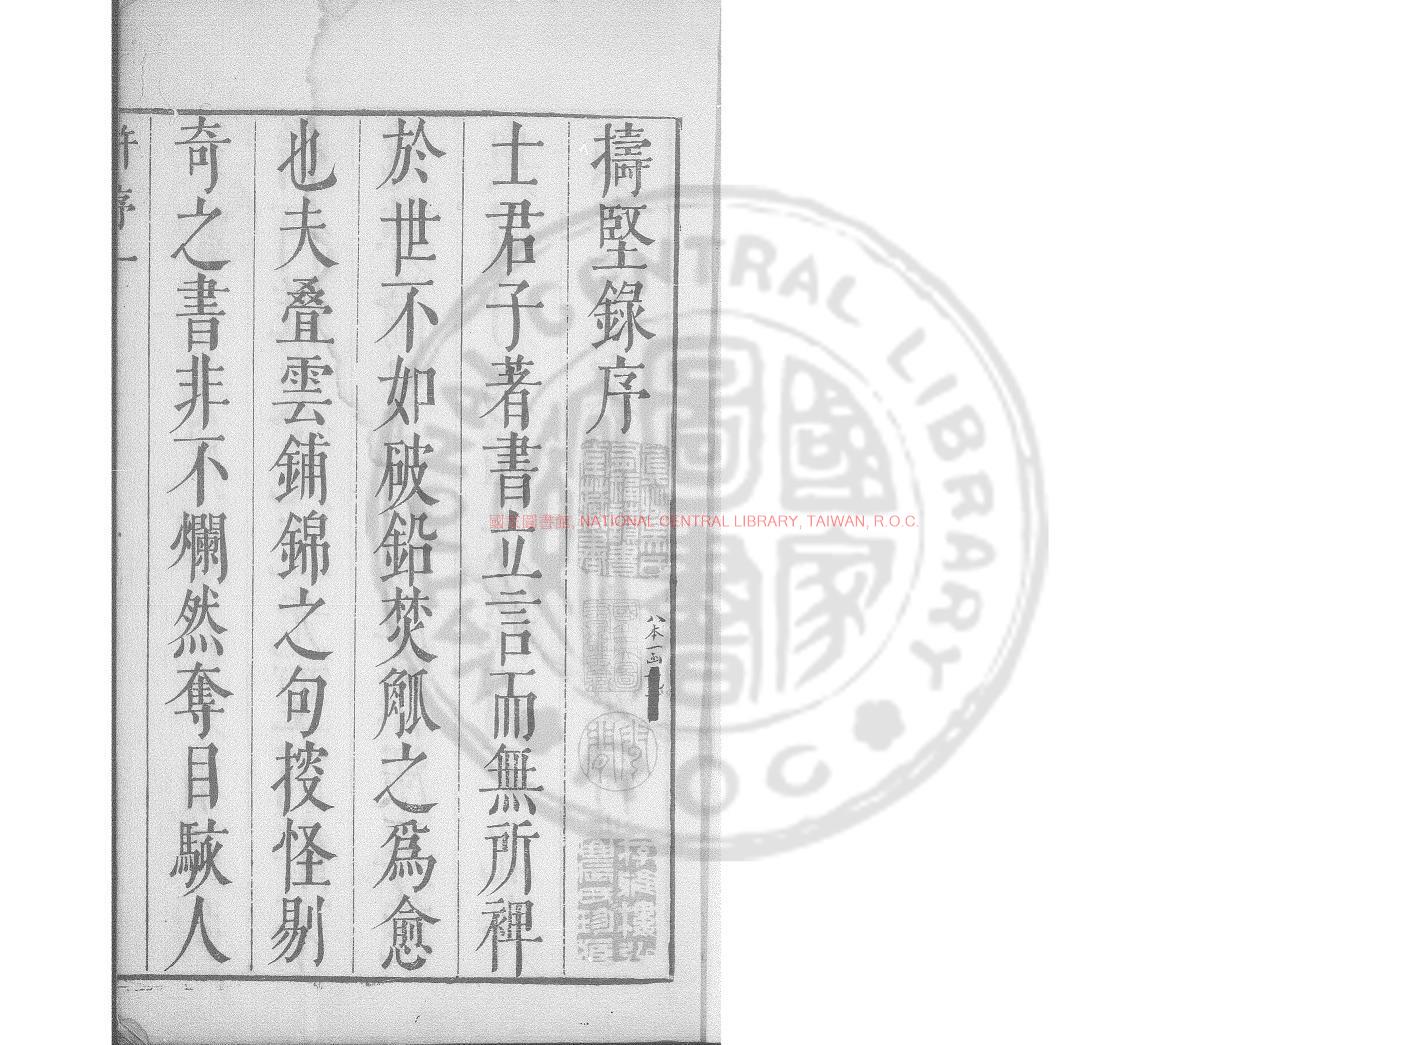 擣堅錄序
八本一函
士君子著書立言而無所裨
於世不如破鉛焚觚之為愈
也夫叠雲鋪錦之句㨰怪剔
奇之書非不爛然奪目駭人
許序 一
國家圖書館, NATIONAL CENTRAL LIBRARY, TAIWAN, R.O.C.
NATIONAL CENTRAL LIBRARY
R O C
國家圖書